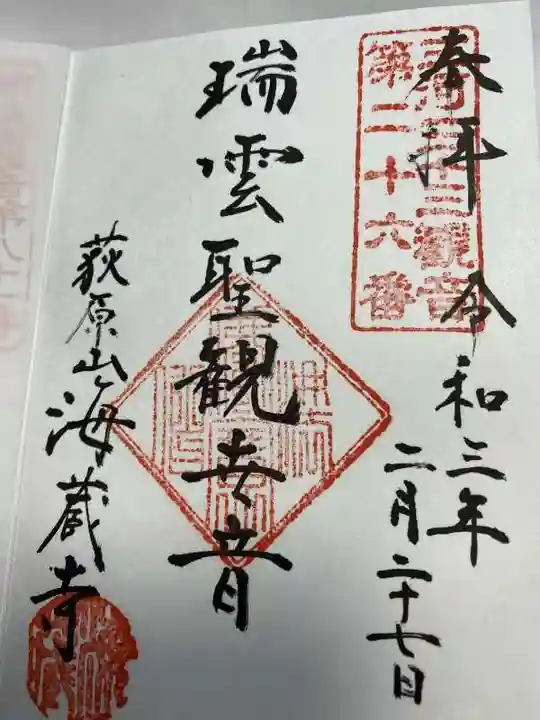 奉拝
令和三年
二月二十七日
三河三十三観音
第二十六番
瑞雲聖観世音
荻原山
海蔵寺